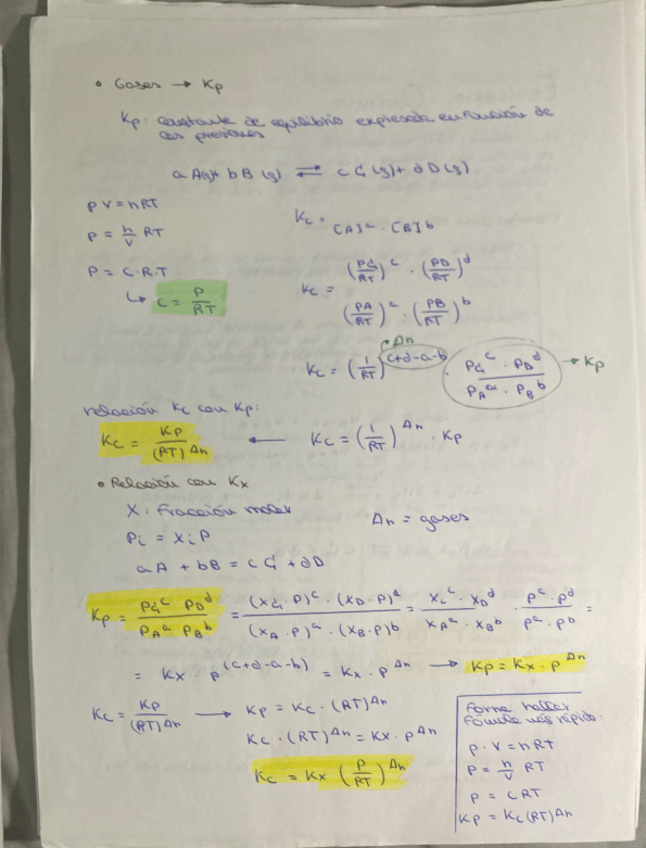 • Gases → Kp
Kp: constante de equilibrio expresada en función de
las presiones
a A(g) + b B (g) ⇌ c C (g) + d D (g)
P V = n R T
P = n/V RT
P = C·R·T
↳ C = P/RT
Kc = / [A]^a · [B]^b
Kc = (PC/RT)^c · (PD/RT)^d / (PA/RT)^a · (PB/RT)^b
Kc = (1/RT)^(c+d-a-b) · PC^c · PD^d / PA^a · PB^b → Kp
Δn
relación Kc con Kp:
Kc = Kp/(RT)^Δn ← Kc = (1/RT)^Δn · Kp
• Relación con Kx
X: Fracción molar
Δn = gases
Pi = Xi P
a A + b B = c C + d D
Kp = PC^c PD^d / PA^a PB^b = (XC·P)^c · (XD·P)^d / (XA·P)^a · (XB·P)^b = XC^c · XD^d / XA^a · XB^b · P^c · P^d / P^a · P^b =
= Kx · P^(c+d-a-b) = Kx · P^Δn → Kp = Kx · P^Δn
Kc = Kp/(RT)^Δn → Kp = Kc · (RT)^Δn
Kc · (RT)^Δn = Kx · P^Δn
Kc = Kx (P/RT)^Δn
Forma hallar
fórmula más rápido:
P · V = n RT
P = n/V RT
P = C RT
Kp = Kc (RT)^Δn